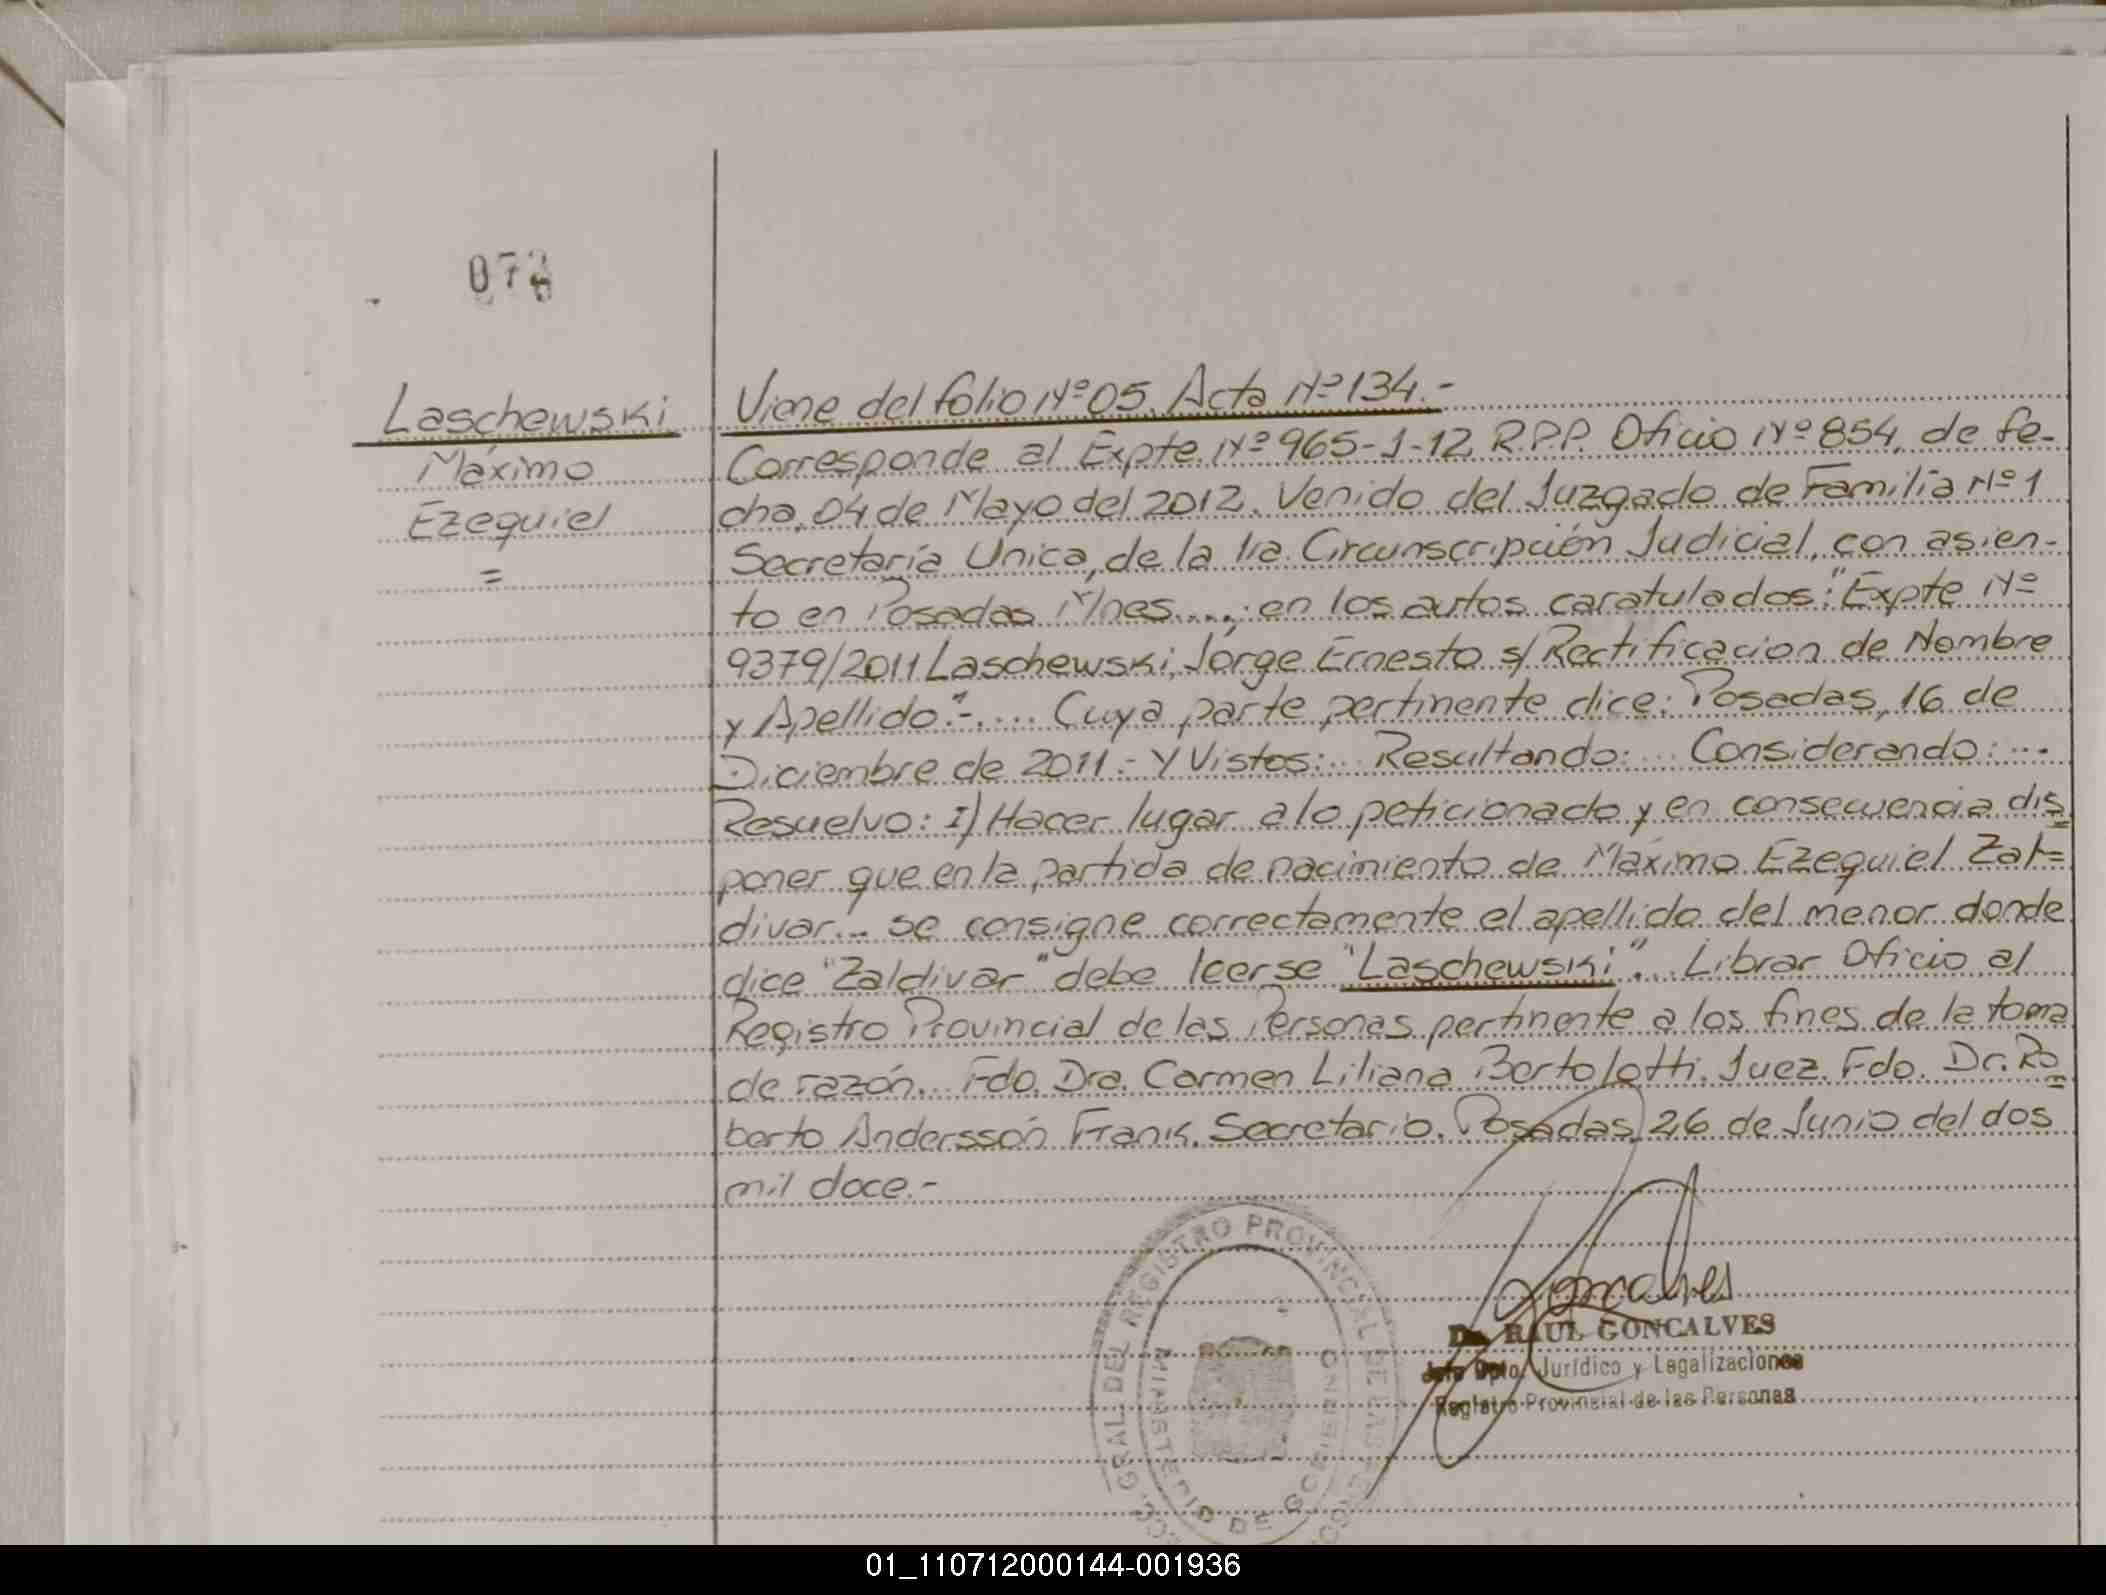 07
Laschewski
Máximo
Ezequiel
=
Viene del folio Nº 05. Acta Nº 134.-
Corresponde al Expte. Nº 965-1-12 R.P.P. Oficio Nº 854, de fe-
cha, 04 de Mayo del 2012. Venido del Juzgado de Familia Nº 1
Secretaría Unica, de la 1ra. Circunscripción Judicial, con asien-
to en Posadas Mnes...; en los autos caratulados: "Expte Nº
9379/2011 Laschewski, Jorge Ernesto s/ Rectificacion de Nombre
y Apellido".-.... Cuya parte pertinente dice: Posadas, 16 de
Diciembre de 2011.- Y Vistos:... Resultando:... Considerando:...
Resuelvo: I) Hacer lugar a lo peticionado y en consecuencia dis=
poner que en la partida de nacimiento de Máximo Ezequiel Zal=
divar... se consigne correctamente el apellido del menor donde
dice "Zaldivar" debe leerse "Laschewski"... Librar Oficio al
Registro Provincial de las Personas pertinente a los fines de la toma
de razón... Fdo. Dra. Carmen Liliana Bortolotti. Juez. Fdo. Dr. Ro=
berto Anderssón Frank. Secretario. Posadas, 26 de Junio del dos
mil doce.-
GRAL DEL REGISTRO PROVINCIAL DE LAS
MINISTERIO DE GOBIERNO
Goncalves
Dr. RAUL GONCALVES
Jefe Dpto. Jurídico y Legalizaciones
Registro Provincial de las Personas
01_110712000144-001936